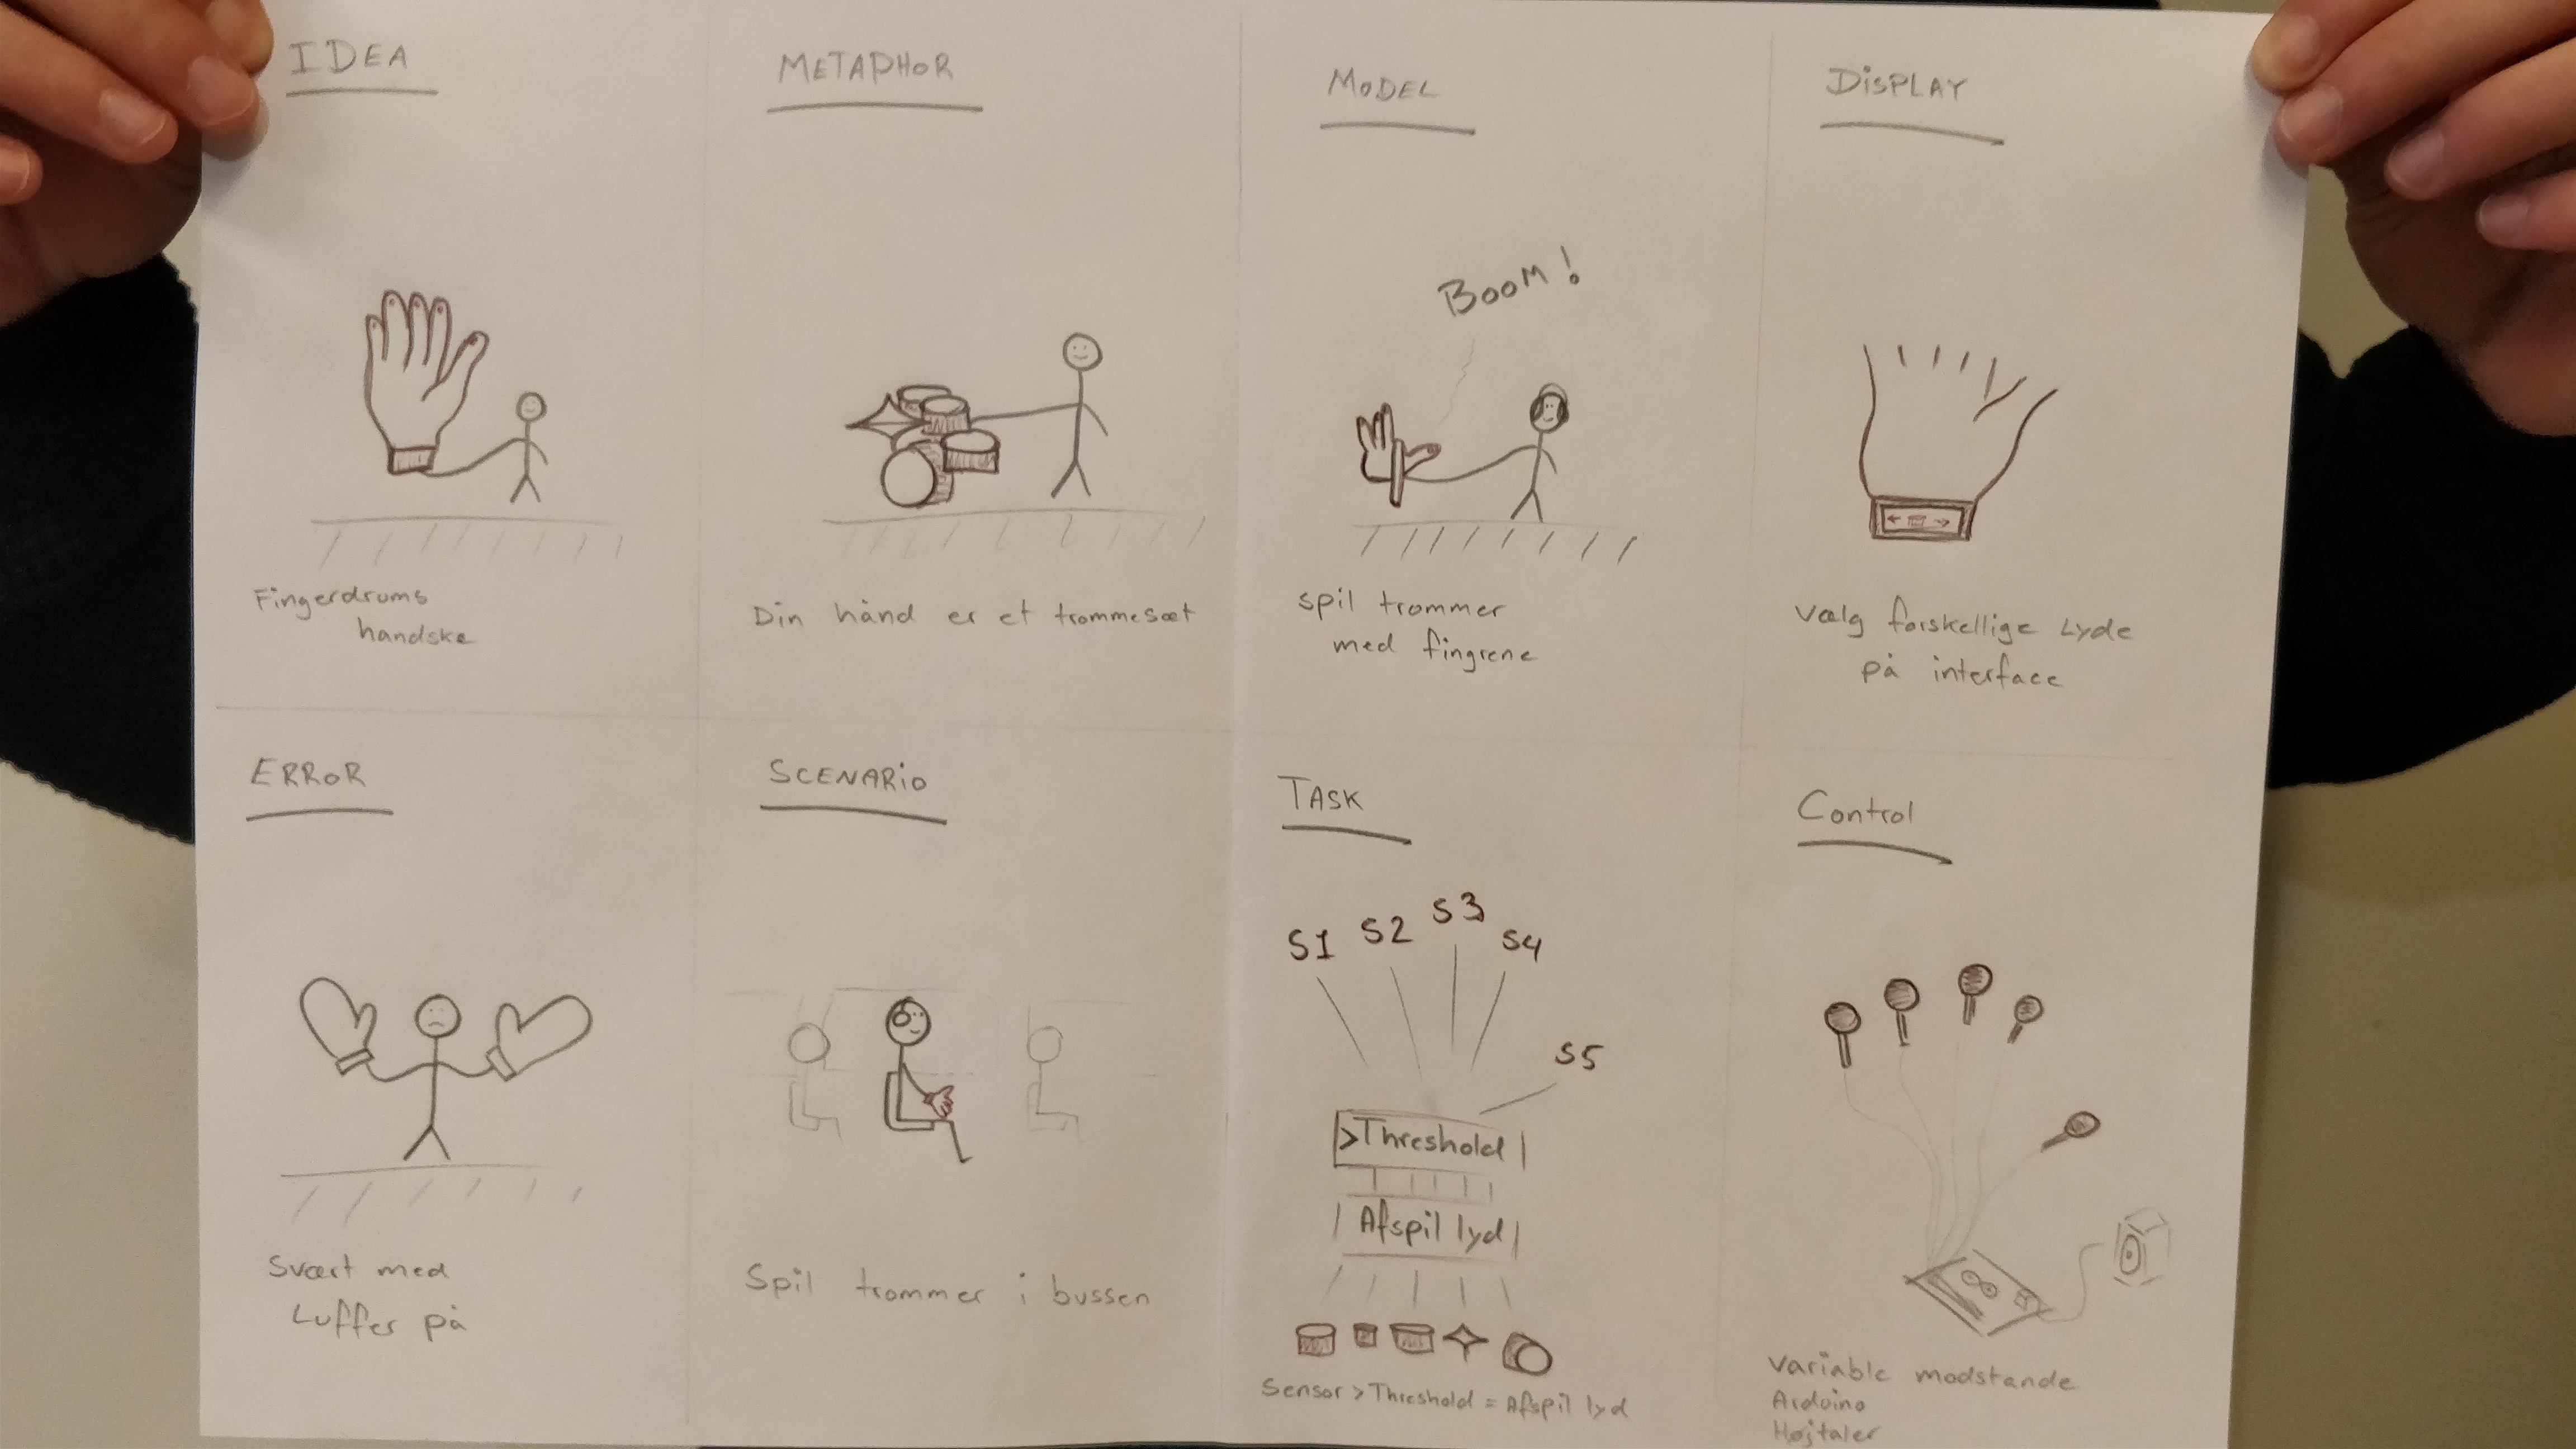 IDEA
Fingerdrums
handske
METAPHOR
Din hånd er et trommesæt
MODEL
BOOM!
spil trommer
med fingrene
DiSPLAY
vælg forskellige Lyde
på interface
ERROR
Svært med
Luffer på
SCENARiO
Spil trommer i bussen
TASK
S1 S2 S3 S4
S5
>Threshold
Afspil lyd
Sensor > Threshold = Afspil lyd
Control
variable modstande
Arduino
Højtaler